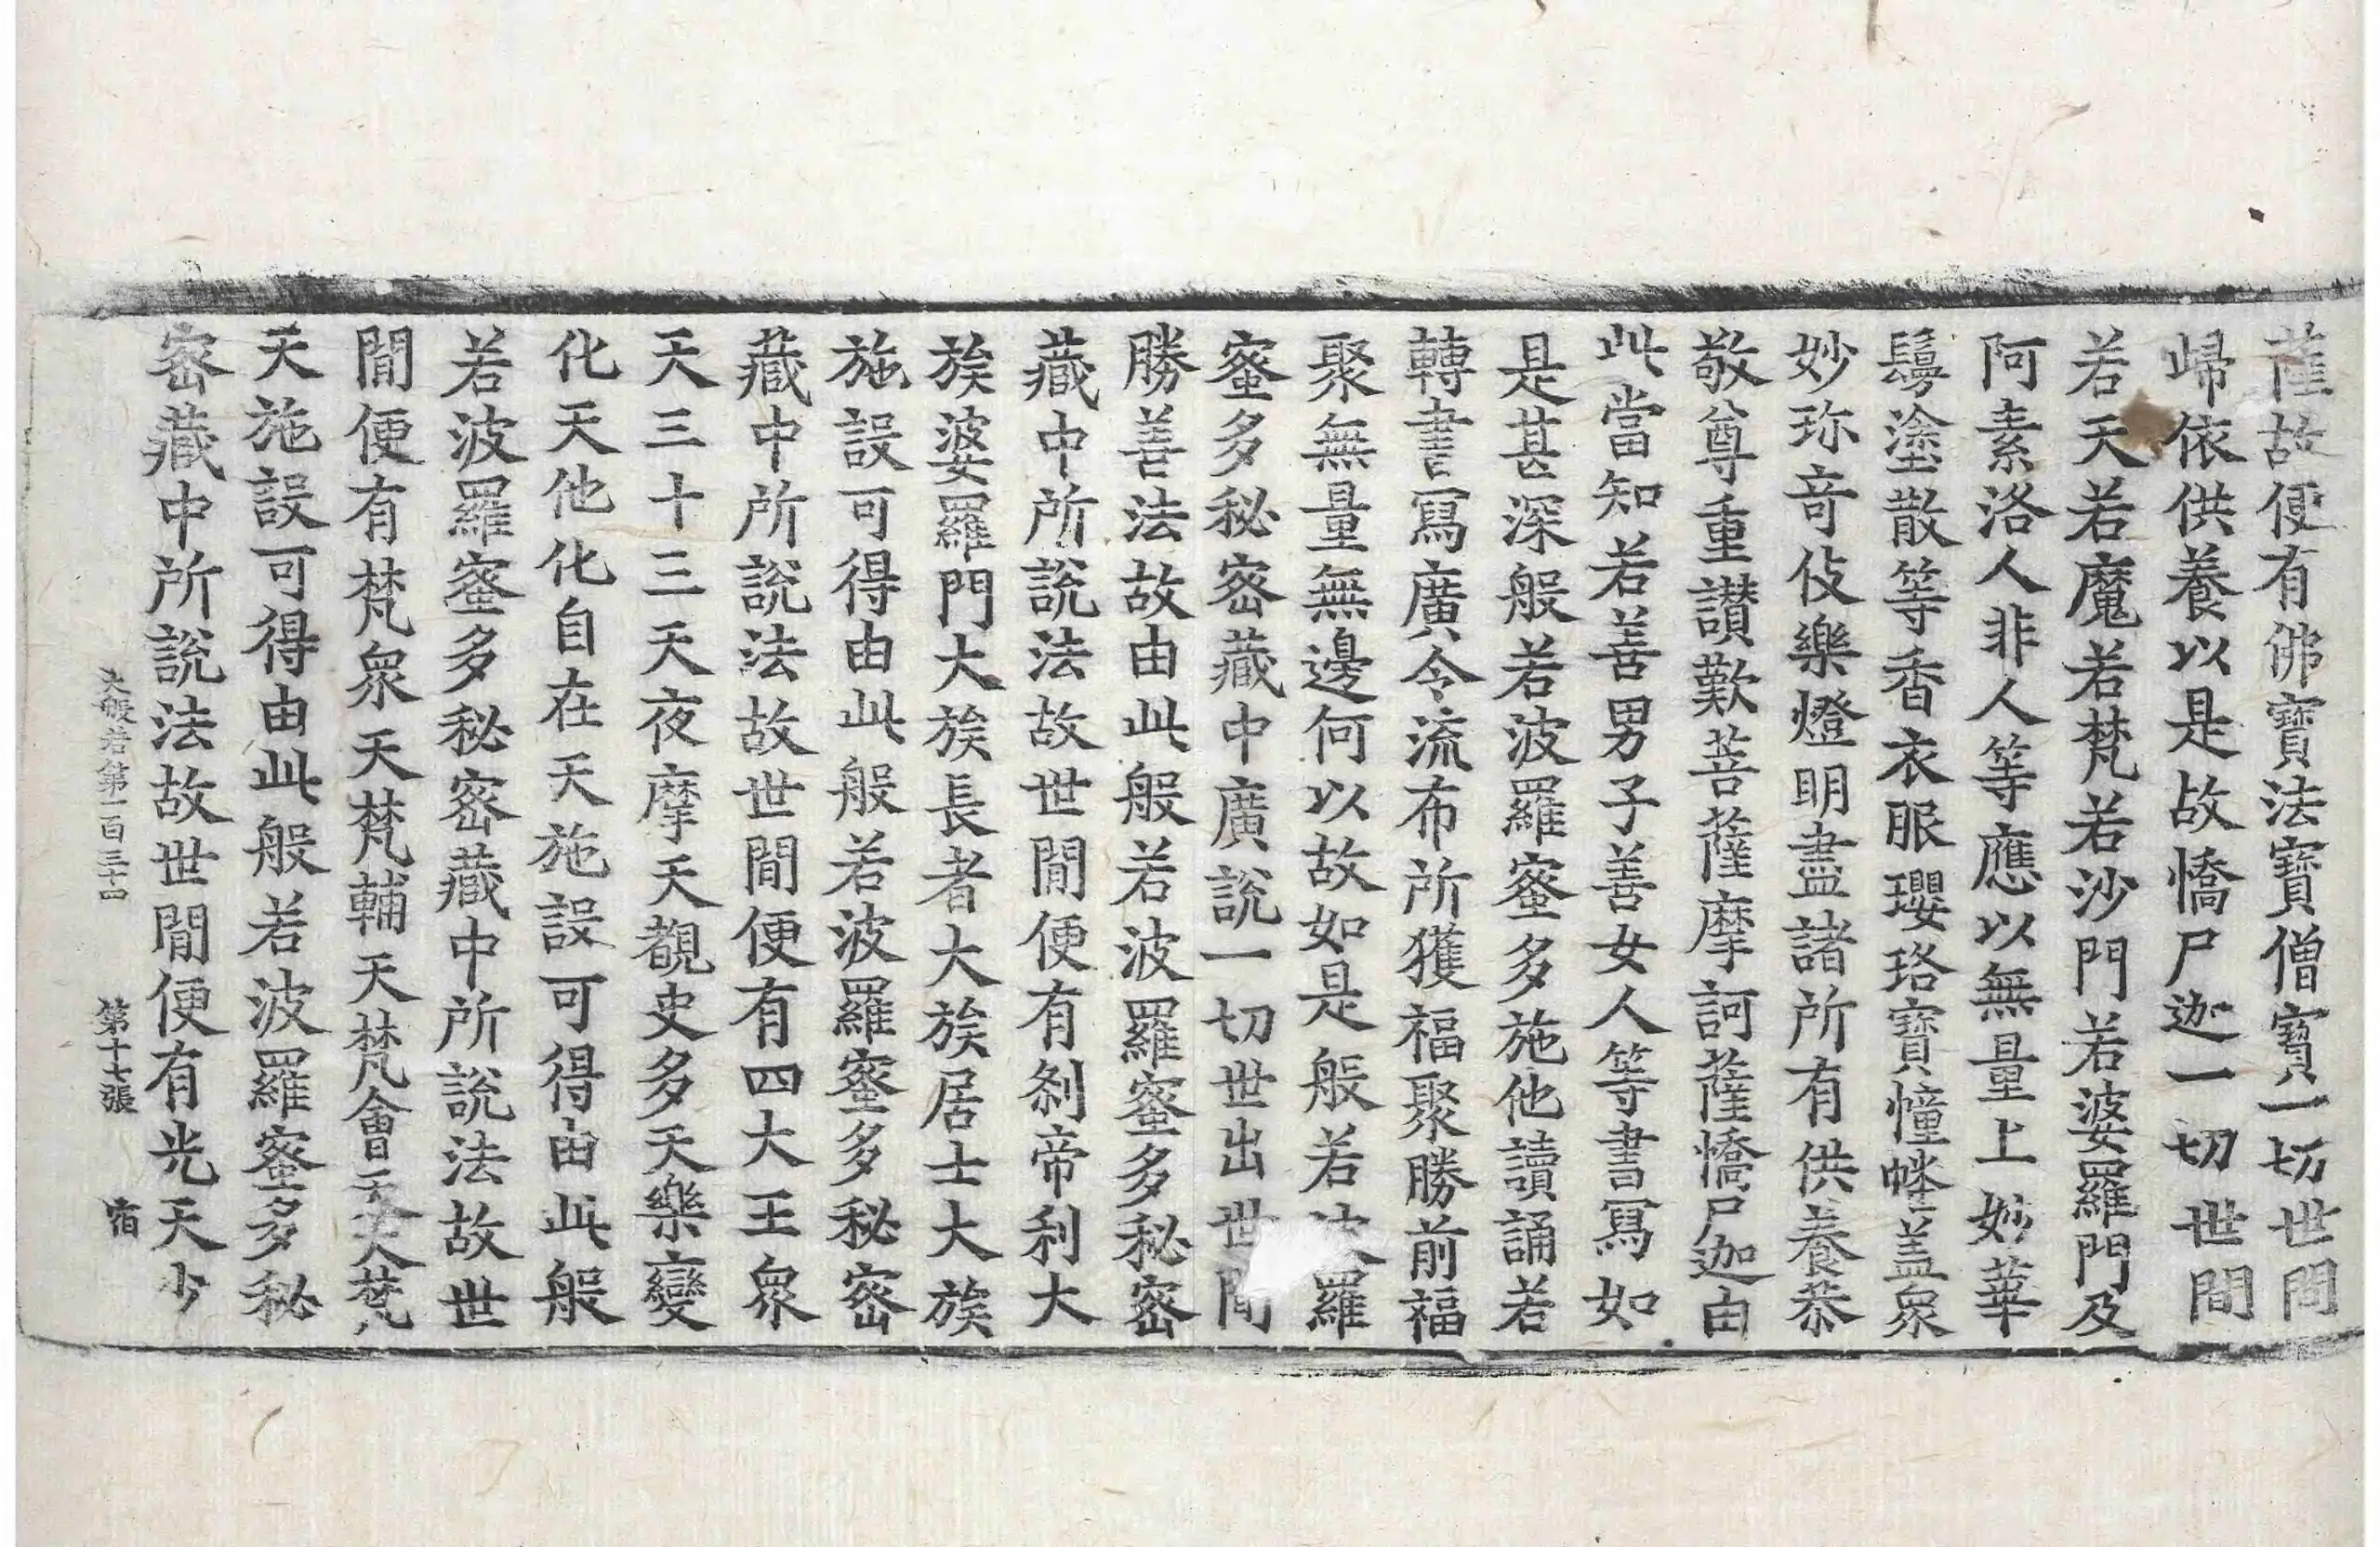 薩故便有佛寶法寶僧寶一切世間
歸依供養以是故憍尸迦一切世間
若天若魔若梵若沙門若婆羅門及
阿素洛人非人等應以無量上妙華
鬘塗散等香衣服瓔珞寶幢幡蓋衆
妙珎奇伎樂燈明盡諸所有供養恭
敬尊重讃歎菩薩摩訶薩憍尸迦由
此當知若善男子善女人等書寫如
是甚深般若波羅蜜多施他讀誦若
轉書寫廣令流布所獲福聚勝前福
聚無量無邊何以故如是般若波羅
蜜多秘密藏中廣說一切世出世間
勝善法故由此般若波羅蜜多秘密
藏中所說法故世間便有刹帝利大
族婆羅門大族長者大族居士大族
施設可得由此般若波羅蜜多秘密
藏中所說法故世間便有四大王衆
天三十三天夜摩天覩史多天樂變
化天他化自在天施設可得由此般
若波羅蜜多秘密藏中所說法故世
間便有梵衆天梵輔天梵會天大梵
天施設可得由此般若波羅蜜多秘
密藏中所說法故世間便有光天少
大般若第一百三十四 第十七張 宿